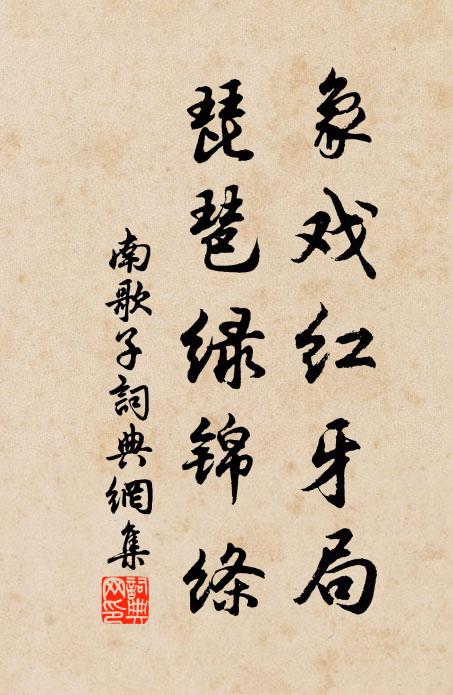 象戏红牙局
琵琶绿锦绦
南歌子詞典網集
詞典
网印